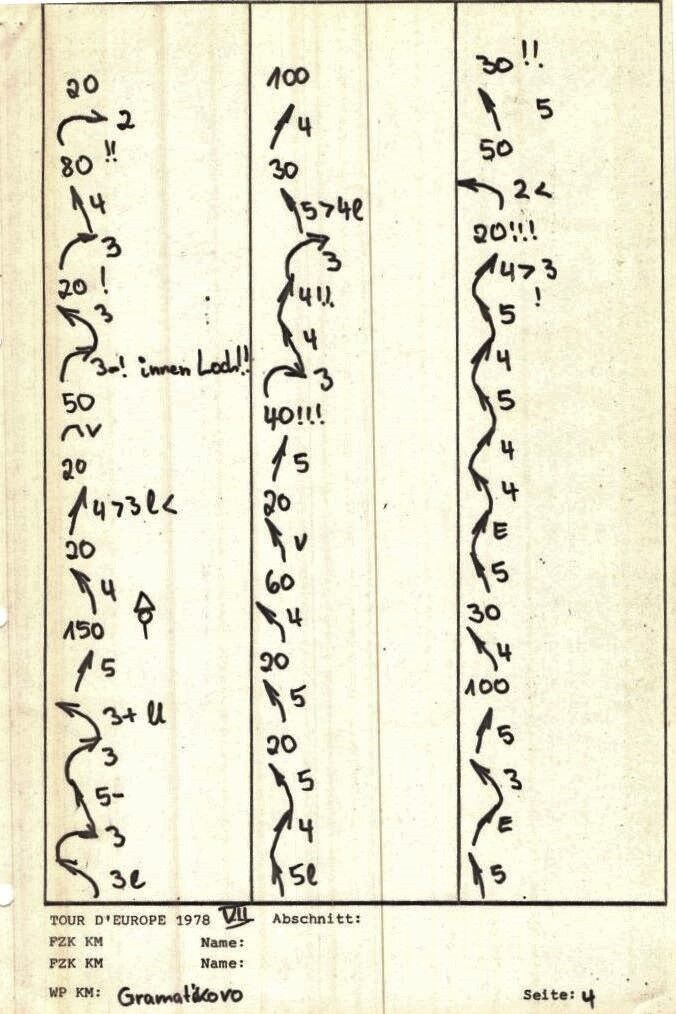 20
2
80 !!
4
3
20 !
3
3-! innen Loch!!
50
v
20
4>3l<
20
4
150
5
3+ ll
3
5-
3
3l
100
4
30
5>4l
3
4!!
4
3
40!!!
5
20
v
60
4
20
5
20
5
4
5l
30 !!
5
50
2<
20!!!
4>3
!
5
4
5
4
4
E
5
30
4
100
5
3
E
5
TOUR D'EUROPE 1978 VII Abschnitt:
FZK KM Name:
FZK KM Name:
WP KM: Gramatikovo Seite: 4